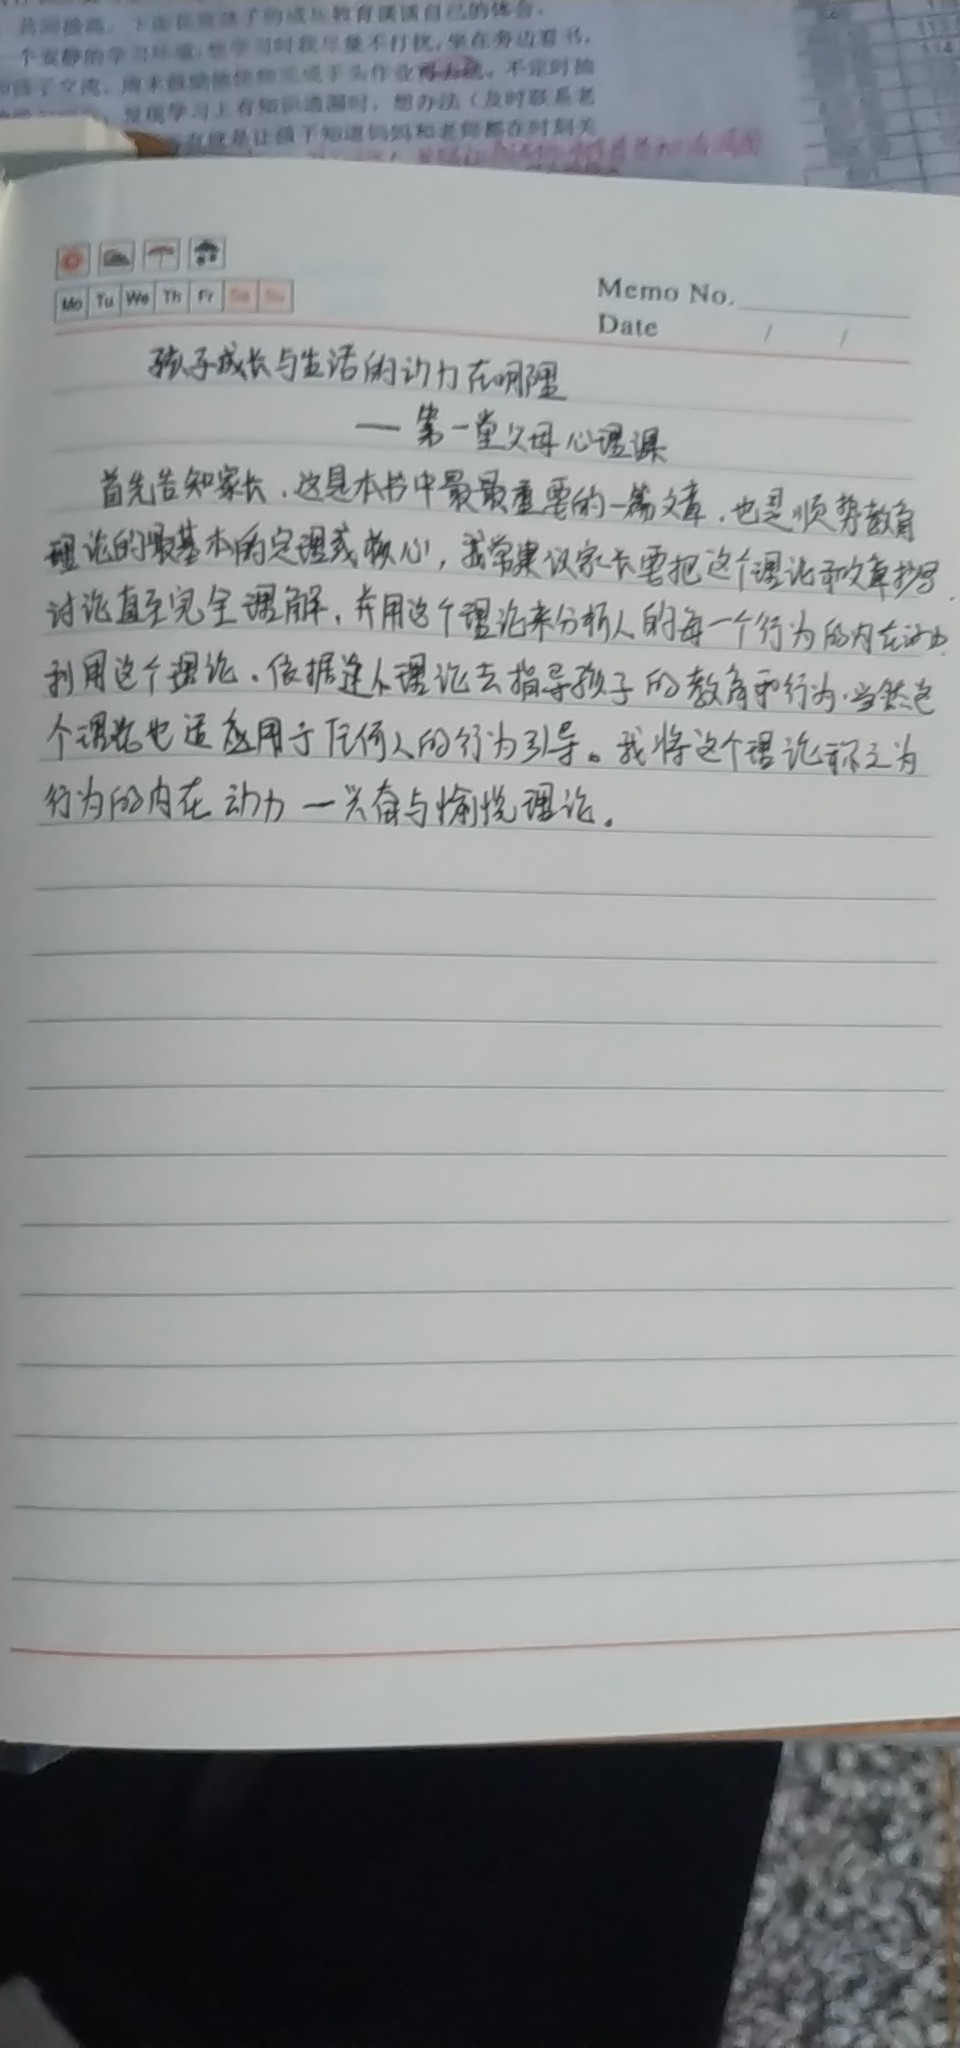 共同提高。下面我就孩子的成长教育谈谈自己的体会。
个安静的学习环境,他学习时我尽量不打扰,坐在旁边看书,
发现学习上有知识遗漏时,想办法(及时联系老
就是让孩子知道妈妈和老师都在时刻关
Mo Tu We Th Fr Sa Su
Memo No.
Date / /
孩子成长与生活的动力在哪里
—第一堂父母心理课
首先告知家长,这是本书中最最重要的一篇文章,也是顺势教育
理论的最基本的定理或核心,我常建议家长要把这个理论和文章抄写,
讨论直至完全理解,并用这个理论来分析人的每一个行为的内在动力
利用这个理论,依据这个理论去指导孩子的教育和行为,当然这
个理论也适应用于任何人的行为引导。我将这个理论称之为
行为的内在动力—兴奋与愉悦理论。